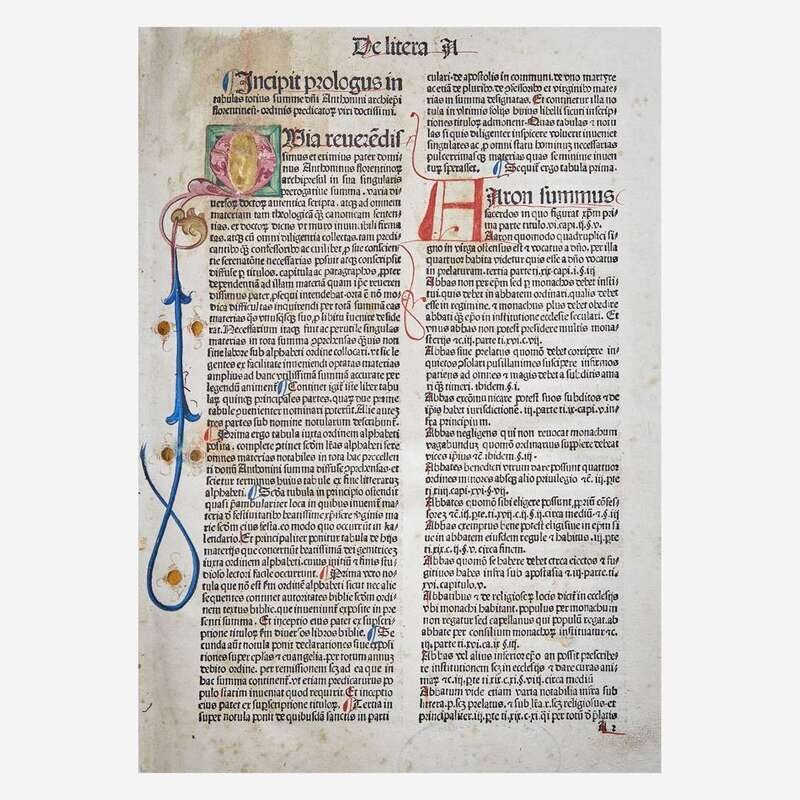 De litera A
Incipit prologus in
tabulas totius summe dñi Anthonini archiepi
florentinen. ordinis predicatoꝝ viri doctissimi.
QVia reuerēdis
simus et eximius pater domi
nus Anthoninus florentinoꝝ
archipresul in sua singulari
prerogatiue summa. varia di
uersoꝝ doctoꝝ autentica scripta. atqꝫ ad omnem
materiam tam theologicā qꝫ canonicam senten
tias. ex doctoꝝ dictis vt muro inuni. ibi firma
tas. atqꝫ cū omni diligentia collectas. tam predi
cantibꝰ qꝫ confessoribꝰ ac cuilibet. ꝓ sue conscien
tie serenatiōe necessarias posuit atqꝫ conscripsit
diffuse ꝑ titulos. capitula ac paragraphos. ꝓpter
dependentiā ad illam materiā quam ipe reueren
dissimus pater ꝓsequi intendebat. orta ē nō mo
dica difficultas inquirendi per totā summā cas
us. quos vnusquisqꝫ suo ꝓ libitu inuenire deside
rat. Necessarium itaqꝫ fuit ac perutile singulas
materias in tota summa ꝯprehensas quis non
sine labore sub alphabeti ordine collocari. vt sic le
gentes ex facilitate inueniendi optatas materias
amplius ad hanc vtilissimā summā accurate per
legendū animent. Continet igit iste liber tabu
lar quinqꝫ principales partes. quaꝝ due prime
tabule ꝯuenienter nominari poterūt. Alie autē
tres partes sub nomine notularum describunt.
Prima ergo tabula iuxta ordinem alphabeti
posita. complete ꝯtinet scdm lr̄as alphabeti fere
omnes materias notabiles in tota hac precellen
ti domi Anthonini summa diffuse ꝯprehensas. et
scietur terminus huius tabule ex fine litteraꝝ
alphabeti. Scda tabula in principio ostendit
quasi ꝑambulariter loca in quibus inueniunt ma
teria de festiuitatibꝰ beatissime ꝟginis ma
rie scdm eius festa. eo modo quo occurrūt in ka
lendario. Et principaliter ponitur tabula de hijs
materijs que concernūt beatissimā dei genetricez
iuxta ordinē alphabeti. cuius initiū et finis stu
dioso lectori facile occurrunt. Prima vero no
tula que nō est scdm ordinē alphabeti sicut nec alie
sequentes continet autoritates biblie scdm ordi
nem textus biblie. que inueniunt exposite in pre
senti summa. Et inceptio eius patet ex supscri
ptione tituloꝝ scdm diuersos libros biblie. Se
cunda aūt notula ponit declarationes siue exposi
tiones super epistolas et euangelia. per totum annuꝫ
debito ordine. per remissionem scz ad ea que in
hac summa continent. vt etiam predicaturus po
pulo statim inueniat quod requirit. Et inceptio
eius patet ex supscriptione titulorꝫ. Tertia in
super notula ponit de quibusdā sanctis in parti
culari. de apostolis in communi. de vno martyre
ac etiā de pluribꝰ. de ꝯfessoribꝰ et virginibꝰ mate
rias in summa designatas. Et continetur illa no
tula in vltimis folijs huius libelli sicuti inscrip
tiones tituloꝝ admonent. Quas tabulas et notu
las si quis diligenter inspicere voluerit inueniet
singulares ac ꝓ omni statu hominuꝫ necessarias
pulcerrimasqꝫ materias quas se minime inueni
tur sperasset. Sequit ergo tabula prima.
AAron summus
sacerdos in quo figurat xp̄m pri
ma parte titulo.vi.capi.ij.§.v.
Aaron quomodo quadruplici si
gno in virga ostensus est et vocatus a dño. per illa
quattuor habita videtur quis esse a dño vocatus
in prelaturam. tertia parte.ti.xix.capi.i.§.iij
Abbas non per ep̄m sed ꝑ monachos debet insti
tui. quis debet in abbatem ordinari. qualis debet
esse in regimine. et monachus plus debet obedire
abbati qꝫ ep̄o in institutione ecclesie seculari. Et
vnus abbas non potest presidere multis mona
sterijs et c.iij.parte ti.xvi.c.vij.
Abbas siue prelatus quomō debet corripere in
quietos. ꝯsolari pusillanimes suscipere infirmos
patiens ad omnes et magis debet a subditis ama
ri qꝫ timeri. ibidem §.i.
Abbas excōmunicare potest suos subditos et de
ip̄is habet iurisdictionē.iij.parte ti.ix.capi.v.in
fra principium.
Abbas negligens qui non reuocat monachum
vagabundū. quomō ordinarius supplere debeat
vices ip̄ius et ibidem.§.iij.
Abbates benedicti vtrum dare possunt quattuor
ordines minores absqꝫ alio priuilegio et c.iij.parte
ti.xiij.capi.xvi.§.vij.
Abbates quomō sibi eligere possunt ꝓprium cōfes
sorez et c.iij.pte ti.xvij.c.ij.§.ij.circa mediū et §.iij
Abbas exemptus bene potest eligi siue in ep̄m siue
in abbatem eiusdem regule et habitus.iij.pte
ti.xix.c.ij.§.v.circa finem.
Abbas quomō se habere debet circa eiectos et fu
gitiuos habes infra sub apostasia et iij.parte.ti.
xvi.capitulo.v.
Abbatibus et de religiosorꝫ locis dicit in ecclesijs
vbi monachi habitant. populus per monachum
non regatur sed capellanus qui populū regat. ab
abbate per consilium monachoꝝ instituatur et c.
iij.parte ti.xvi.ca.ix §.iij.
Abbas vel alius inferior ep̄o an possit prescribe
re institutionem scz in ecclesijs et dare curas ani
marꝫ et c.iij.pte ti.xix.c.ij.§.iij.circa mediū
Abbatum vide etiam varia notabilia infra sub
littera.p.scz prelatus. et sub lr̄a.r.scz religiosus. et
principaliter.iij.pte ti.xix.c.xi. qi per totū d̄ p̄latis
A 2